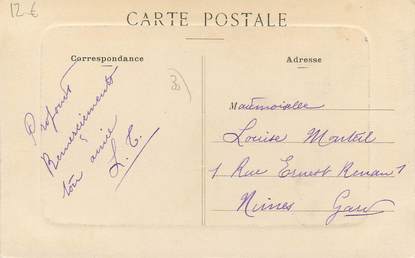 12 €
CARTE POSTALE
Correspondance
Adresse
30
Profonds
Remerciements
ton amie
L. C.
Mademoiselle
Louise Marteil
1 Rue Ernest Renan 1
Nimes Gard